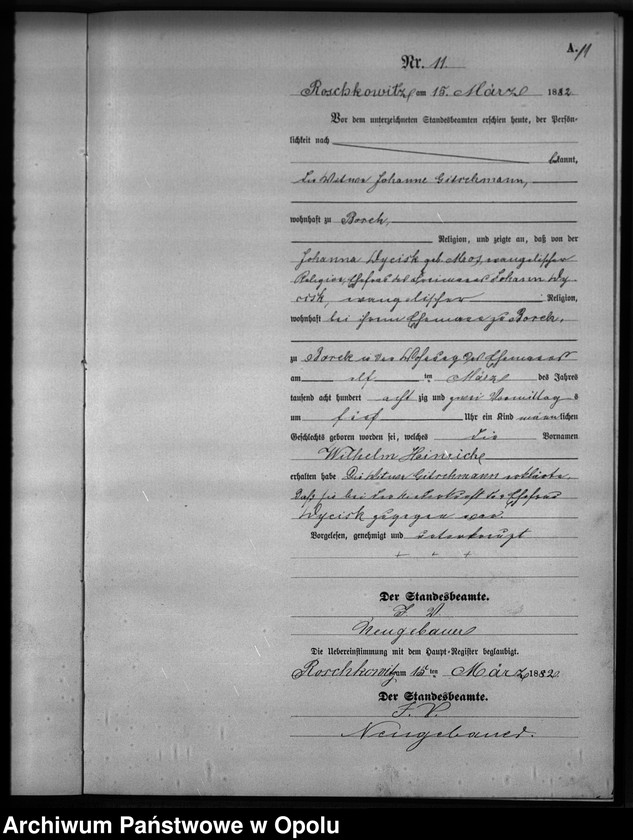 A. 11
Nr. 11.
Roschkowitz am 15. März 1882
Vor dem unterzeichneten Standesbeamten erschien heute, der Persön-
lichkeit nach
bekannt,
die Witwe Johanne Gitschmann,
wohnhaft zu Borek,
Religion, und zeigte an, daß von der
Johanna Dycisk geb. Mros, evangelischer
Religion, Ehefrau des Johann Dy
cisk, evangelischer Religion,
wohnhaft bei ihrem Ehemann zu Borek,
zu Borek in der Wohnung des Ehemanns
am elf ten März des Jahres
tausend acht hundert acht zig und zwei Vormittag s
um fünf Uhr ein Kind männlichen
Geschlechts geboren worden sei, welches die Vornamen
Wilhelm Heinrich
erhalten habe Die Witwe Gitschmann erklärte,
daß sie bei der Niederkunft der Ehefrau
Dycisk zugegen war.
Vorgelesen, genehmigt und unterkreuzt
+ + +
Der Standesbeamte.
J. V.
Neugebauer
Die Uebereinstimmung mit dem Haupt-Register beglaubigt.
Roschkowitz am 15 ten März 1882
Der Standesbeamte.
J. V.
Neugebauer.
Archiwum Państwowe w Opolu